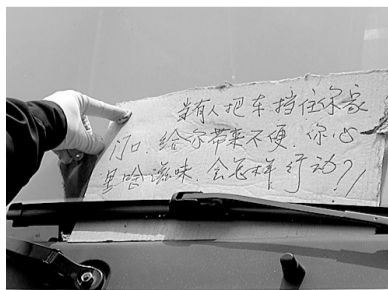 当有人把车挡住你家
门口.给你带来不便.你心
里啥滋味.会怎样行动?